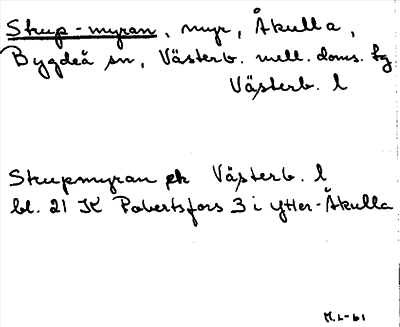 Strup-myran, myr, Åkulla,
Bygdeå sn, Västerb. mell. doms. tg
Västerb. l
Strupmyran ek Västerb. l
bl. 21 K Robertsfors 3 i Ytter-Åkulla
M.L-61